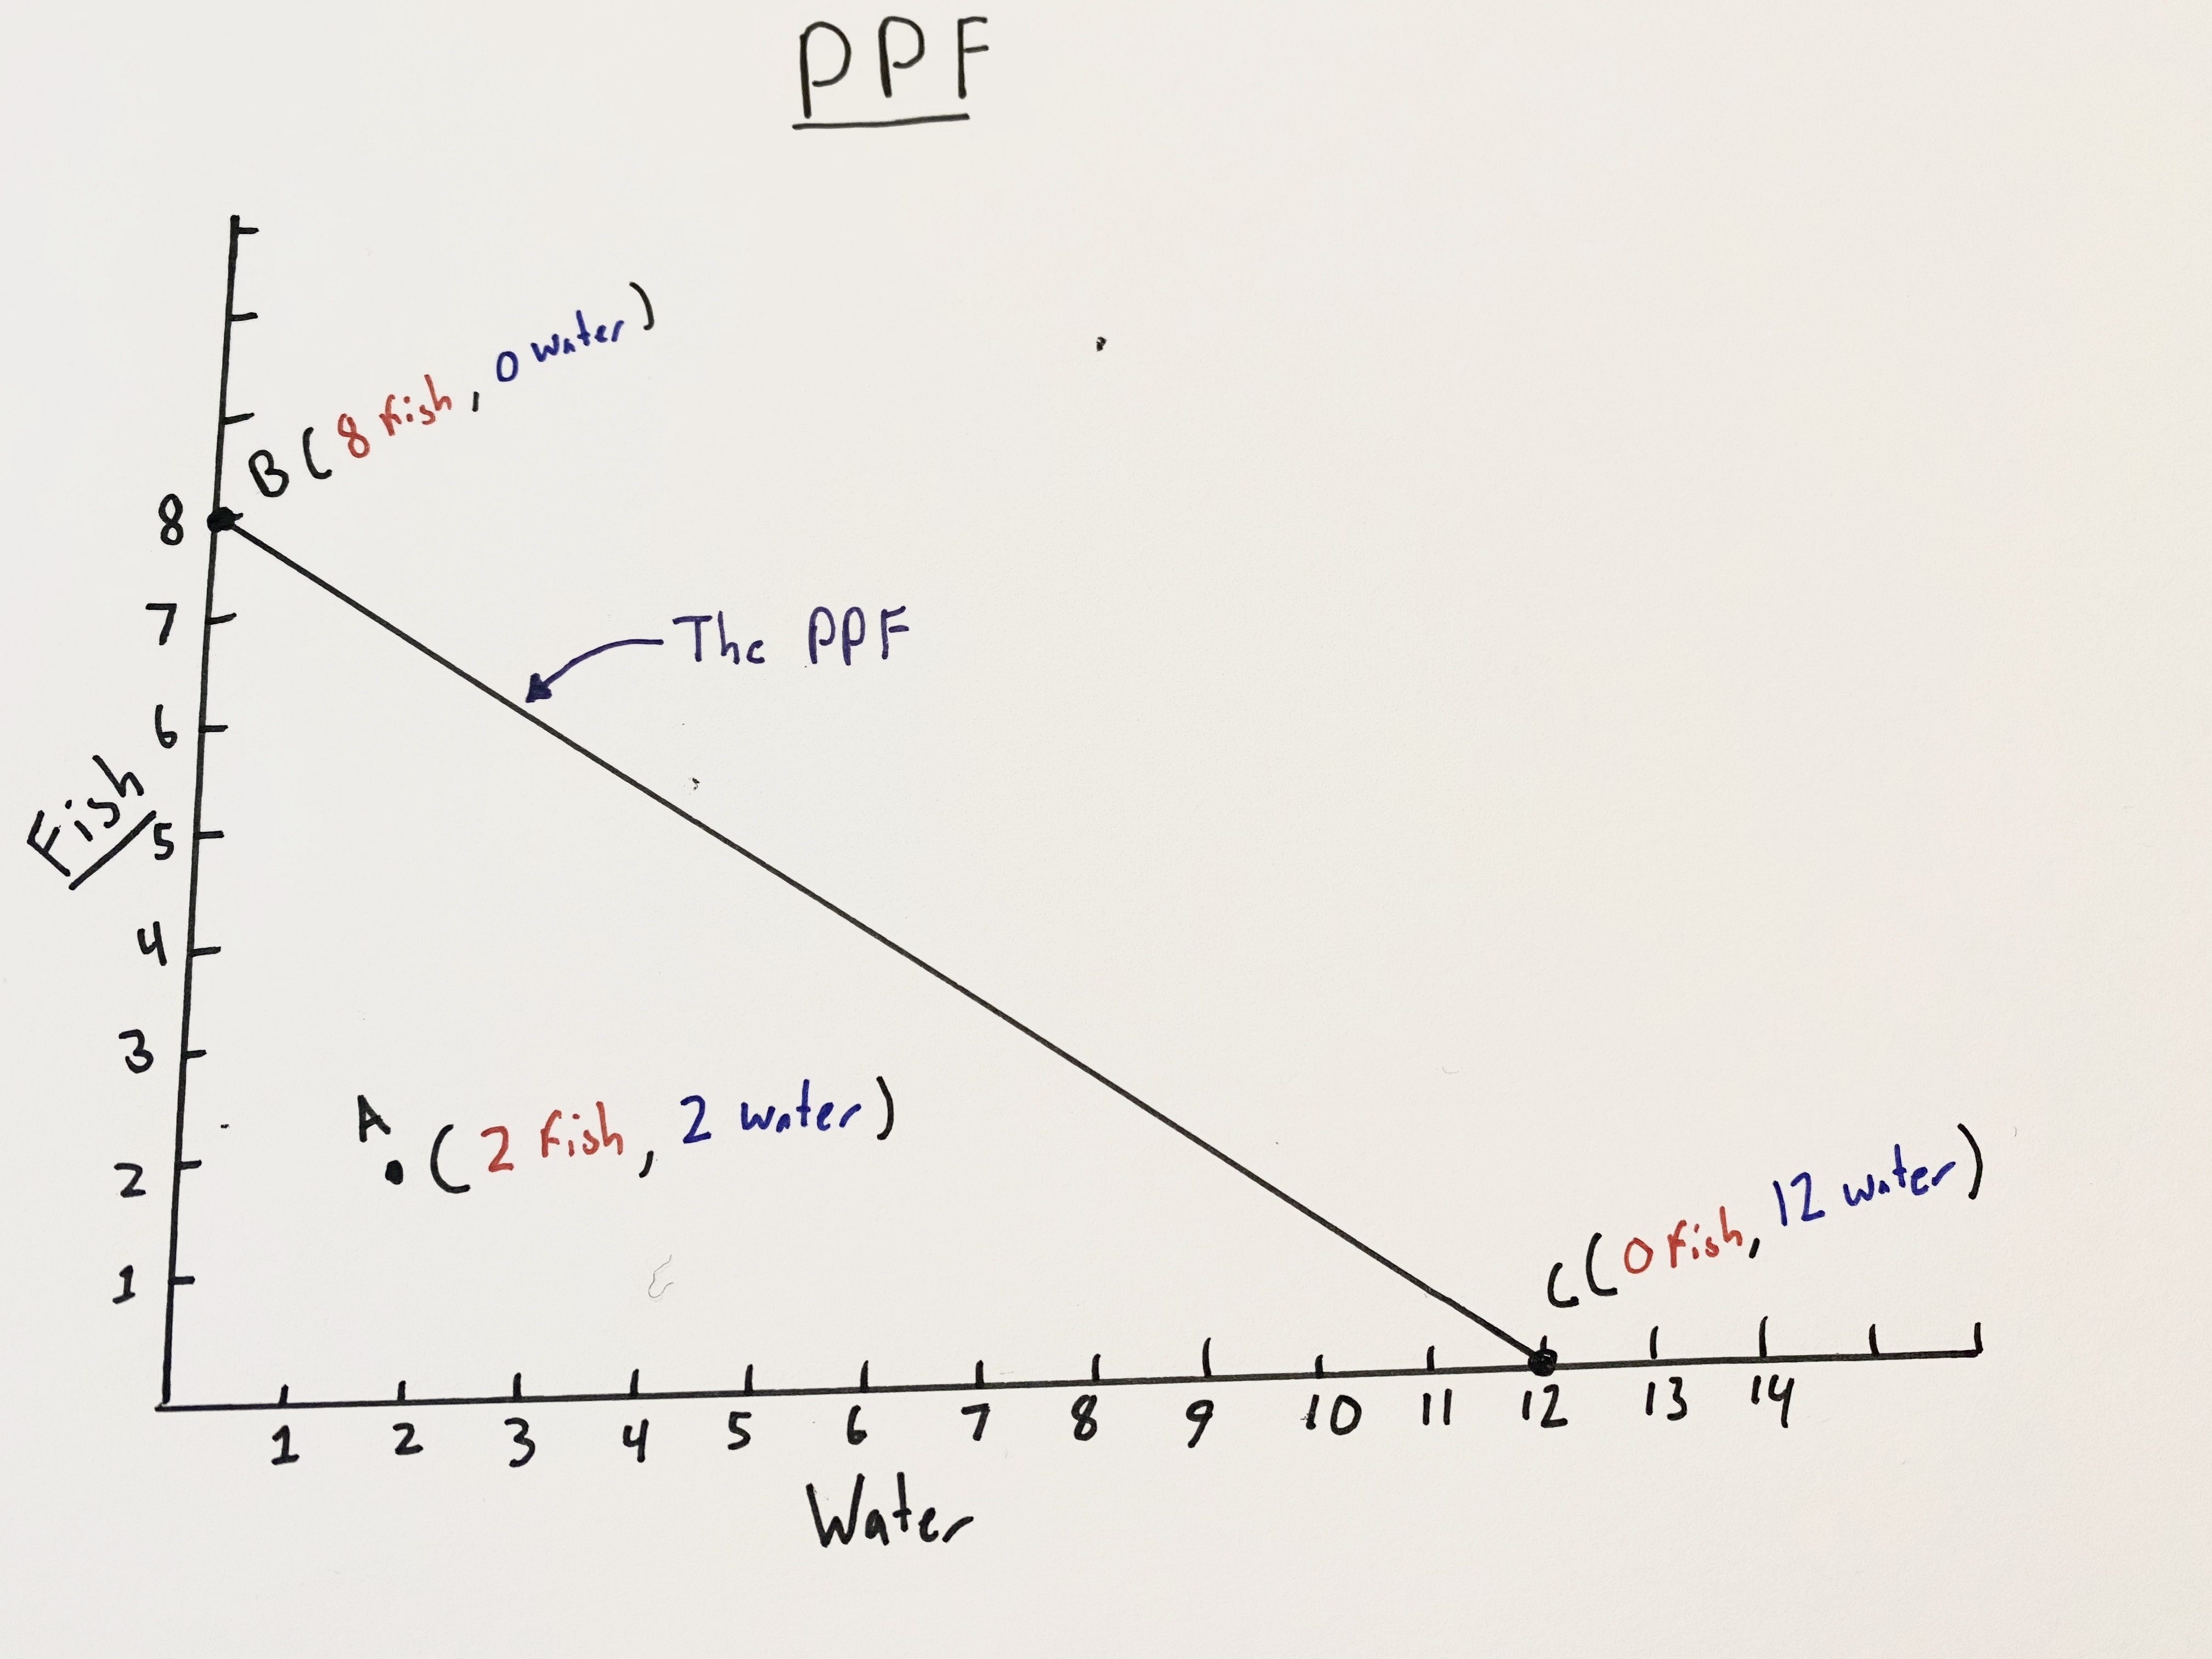 PPF
B (8 fish, 0 water)
8
7
The PPF
6
Fish
5
4
3
A
(2 fish, 2 water)
2
C (0 fish, 12 water)
1
1 2 3 4 5 6 7 8 9 10 11 12 13 14
Water